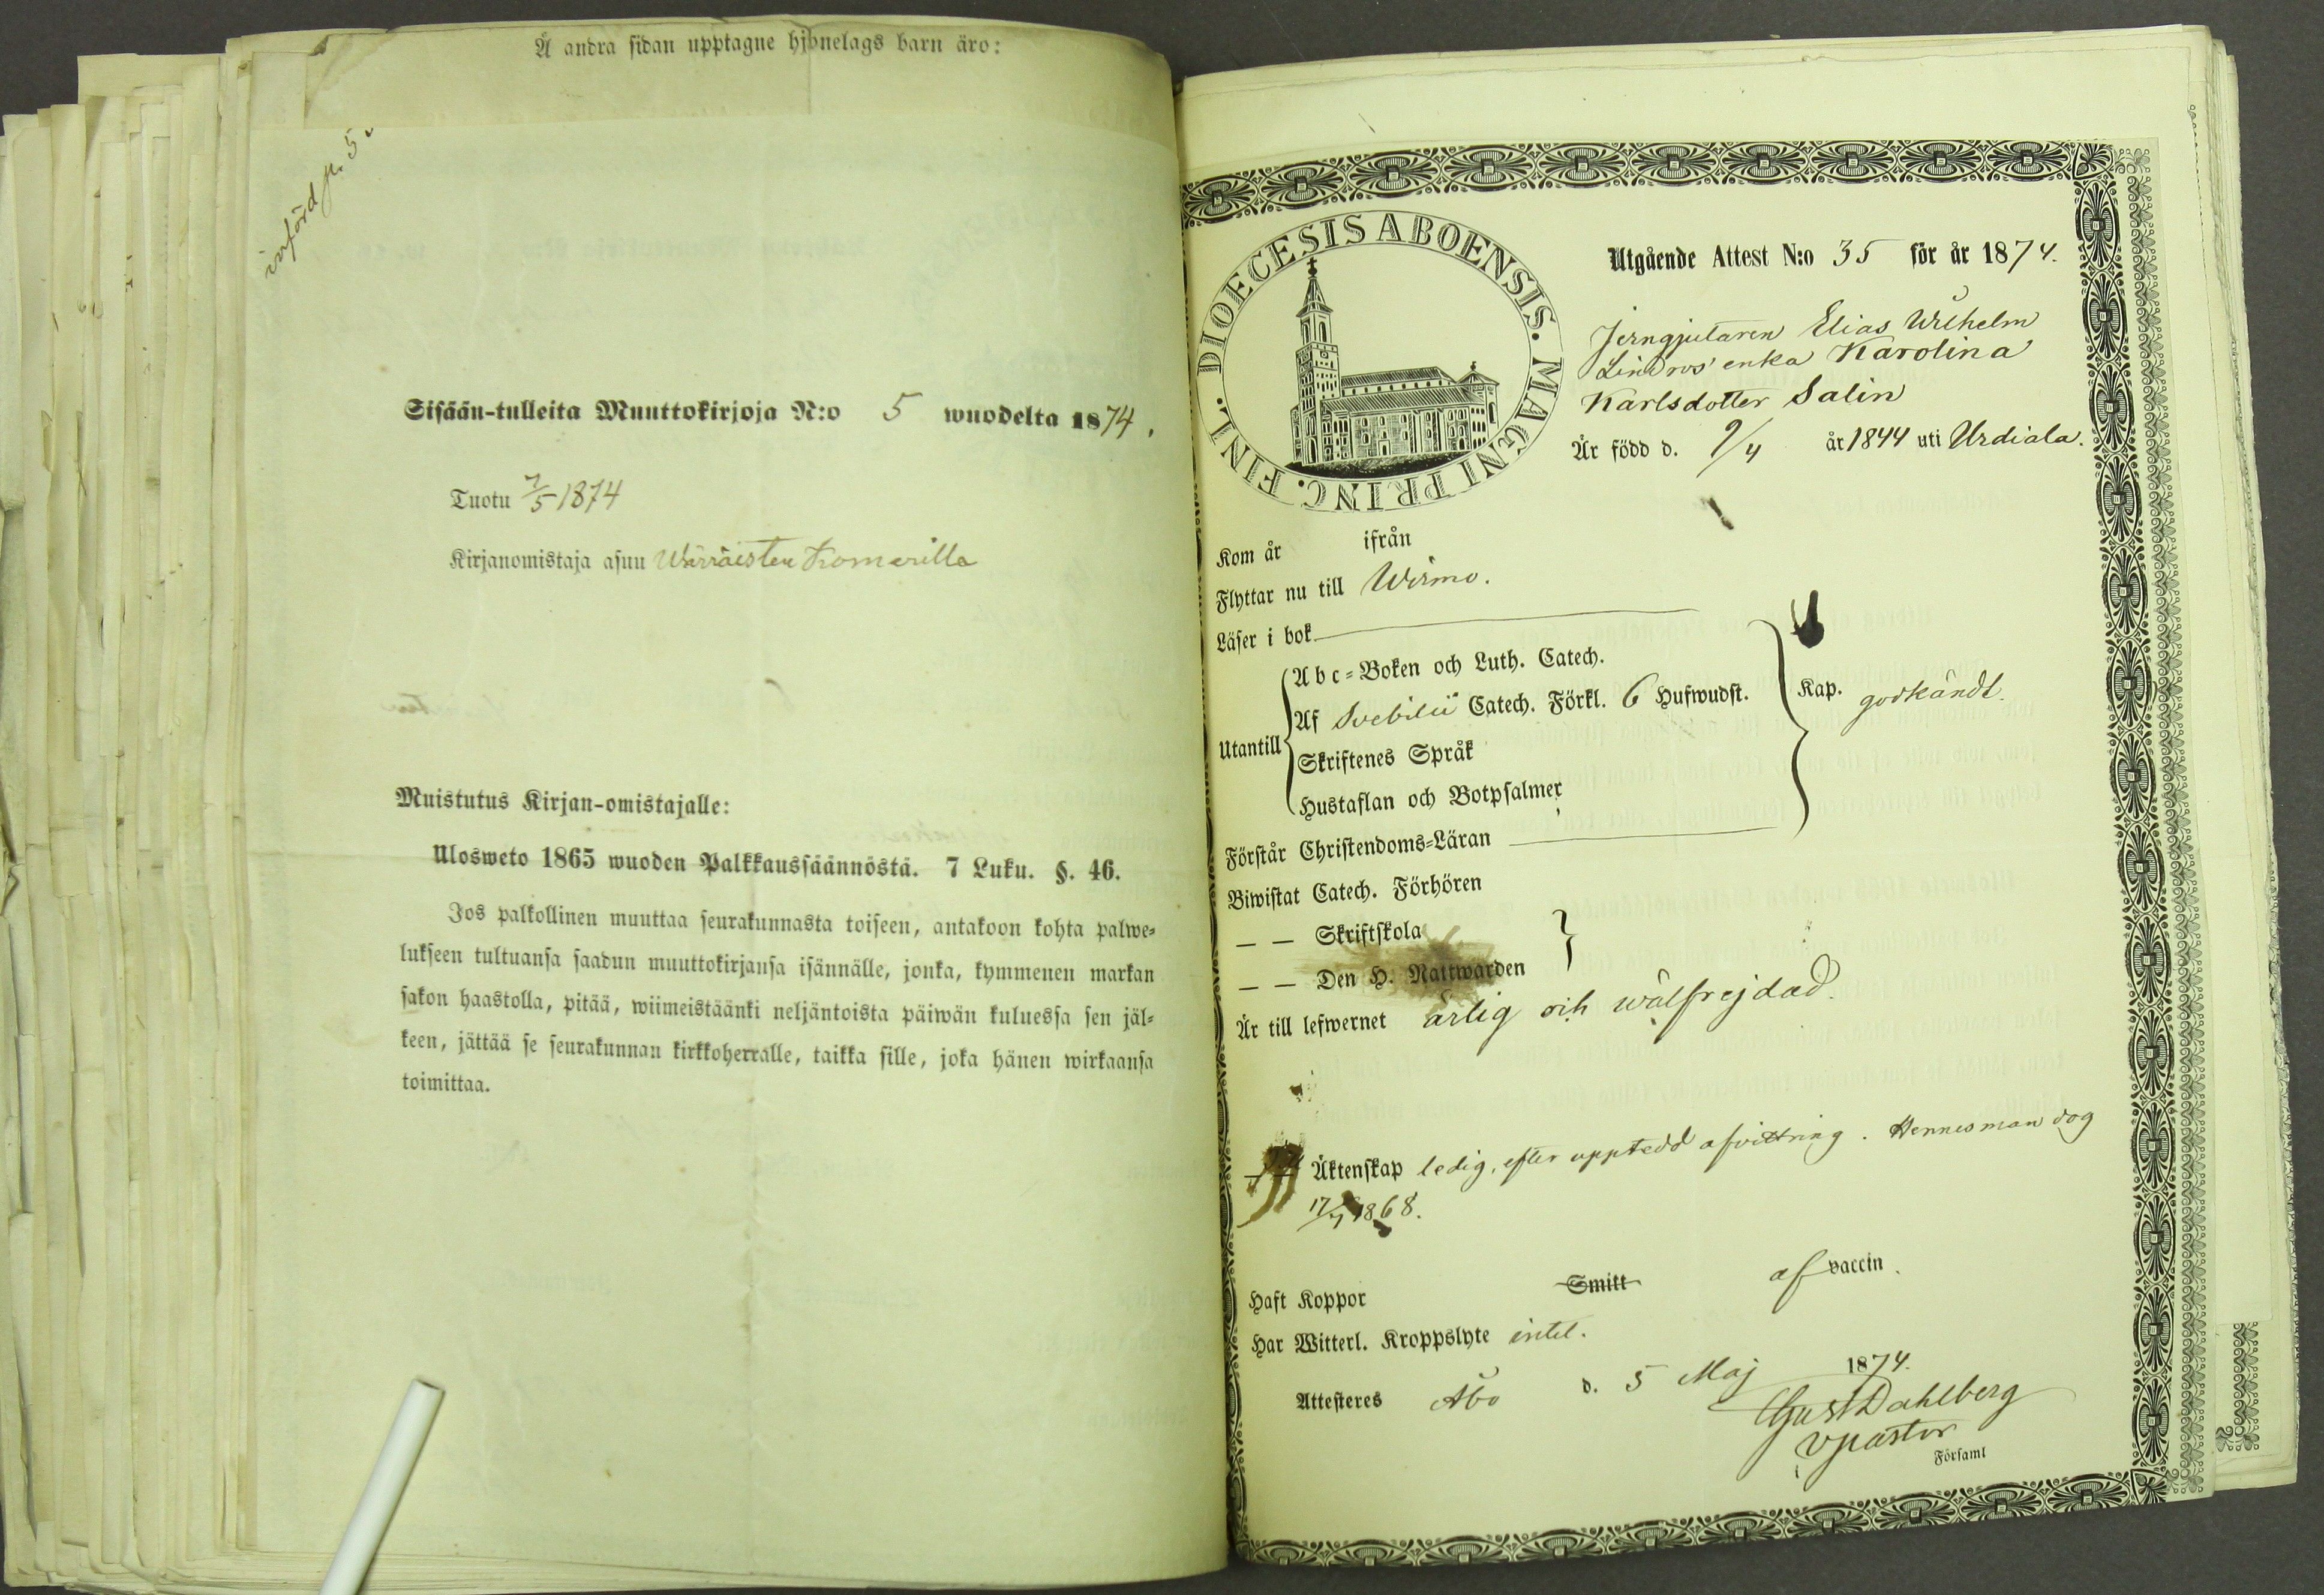 Å andra sidan upptagne hjonelags barn äro:
införd p. 5
Sisään-tulleita Muuttokirjoja N:o 5 wuodelta 1874.
Tuotu 7/5 1874
Kirjanomistaja asuu
Muistutus Kirjan-omistajalle:
Ulosweto 1865 wuoden Palkkaussäännöstä. 7 Luku. §. 46.
Jos palkollinen muuttaa seurakunnasta toiseen, antakoon kohta palwe-
lukseen tultuansa saadun muuttokirjansa isännälle, jonka, kymmenen markan
sakon haastolla, pitää, wiimeistäänki neljäntoista päiwän kuluessa sen jäl-
keen, jättää se seurakunnan kirkkoherralle, taikka sille, joka hänen wirkaansa
toimittaa.
DIOECESIS ABOENSIS. MAGNI PRINC. FINL.
Utgående Attest N:o 35 för år 1874.
Jerngjutaren Elias Wilhelm
Lindros' enka Karolina
Karlsdotter Salin
Är född d. 9/4 år 1844 uti Urdiala.
Kom år ifrån
Flyttar nu till Wirmo.
Läser i bok
Utantill
Abc-Boken och Luth. Catech.
Af Svebilii Catech. Förkl. 6 Hufwudst.
Kap. godkändt.
Skriftenes Språk
Hustaflan och Botpsalmer
Förstår Christendoms-Läran
Biwistat Catech. Förhören
— — Skriftskola
— — Den H. Nattwarden
Är till lefwernet ärlig och wälfrejdad.
Äktenskap ledig, efter uppted afvittring. Hennes man dog
17/7 1868.
Haft Koppor Smitt af vaccin.
Har Witterl. Kroppslyte intet.
Attesteres Åbo d. 5 Maj 1874.
Gust Dahlberg
v pastor
Församl